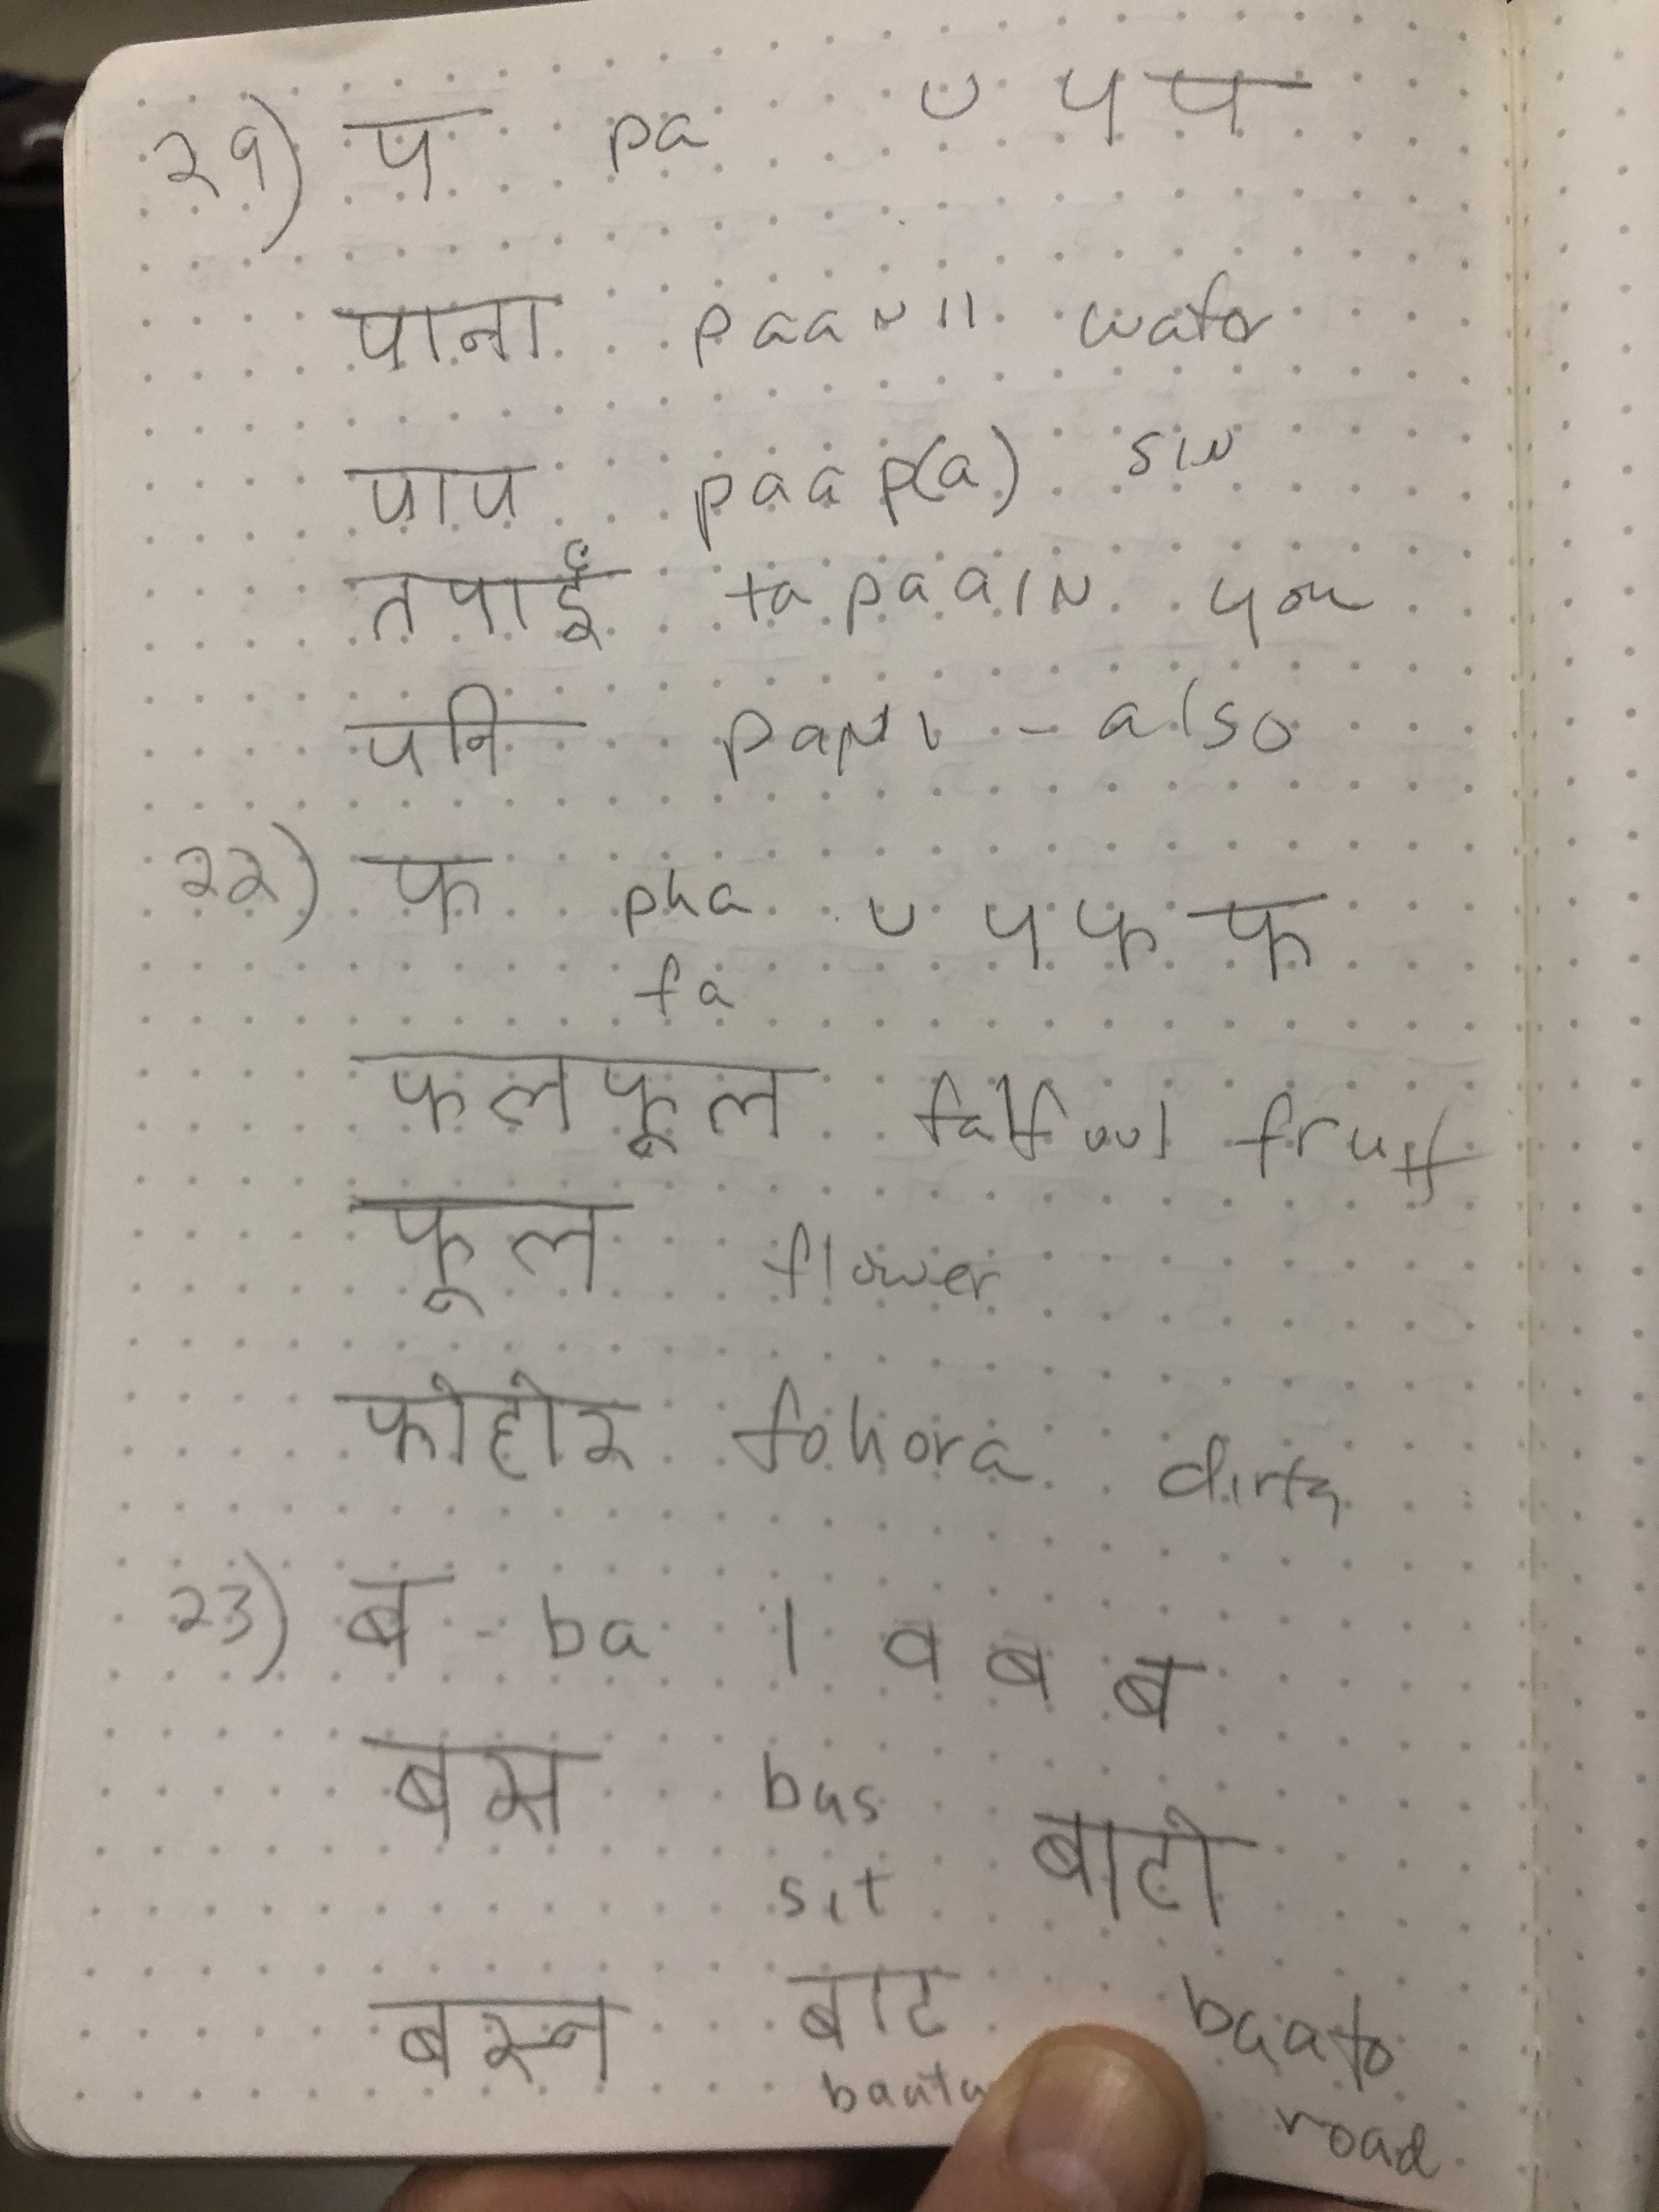 २१) प pa ᴗ प प
पाना paanii water
पाप paap(a) sin
तपाईं tapaain you
पनि pani - also
२२) फ pha ᴗ प फ फ
fa
फलफूल falfuul fruit
फूल flower
फोहोर fohora dirty
२३) ब - ba । व ब ब
बस bas
sit बाटो
बस्न बाट baato
baata road